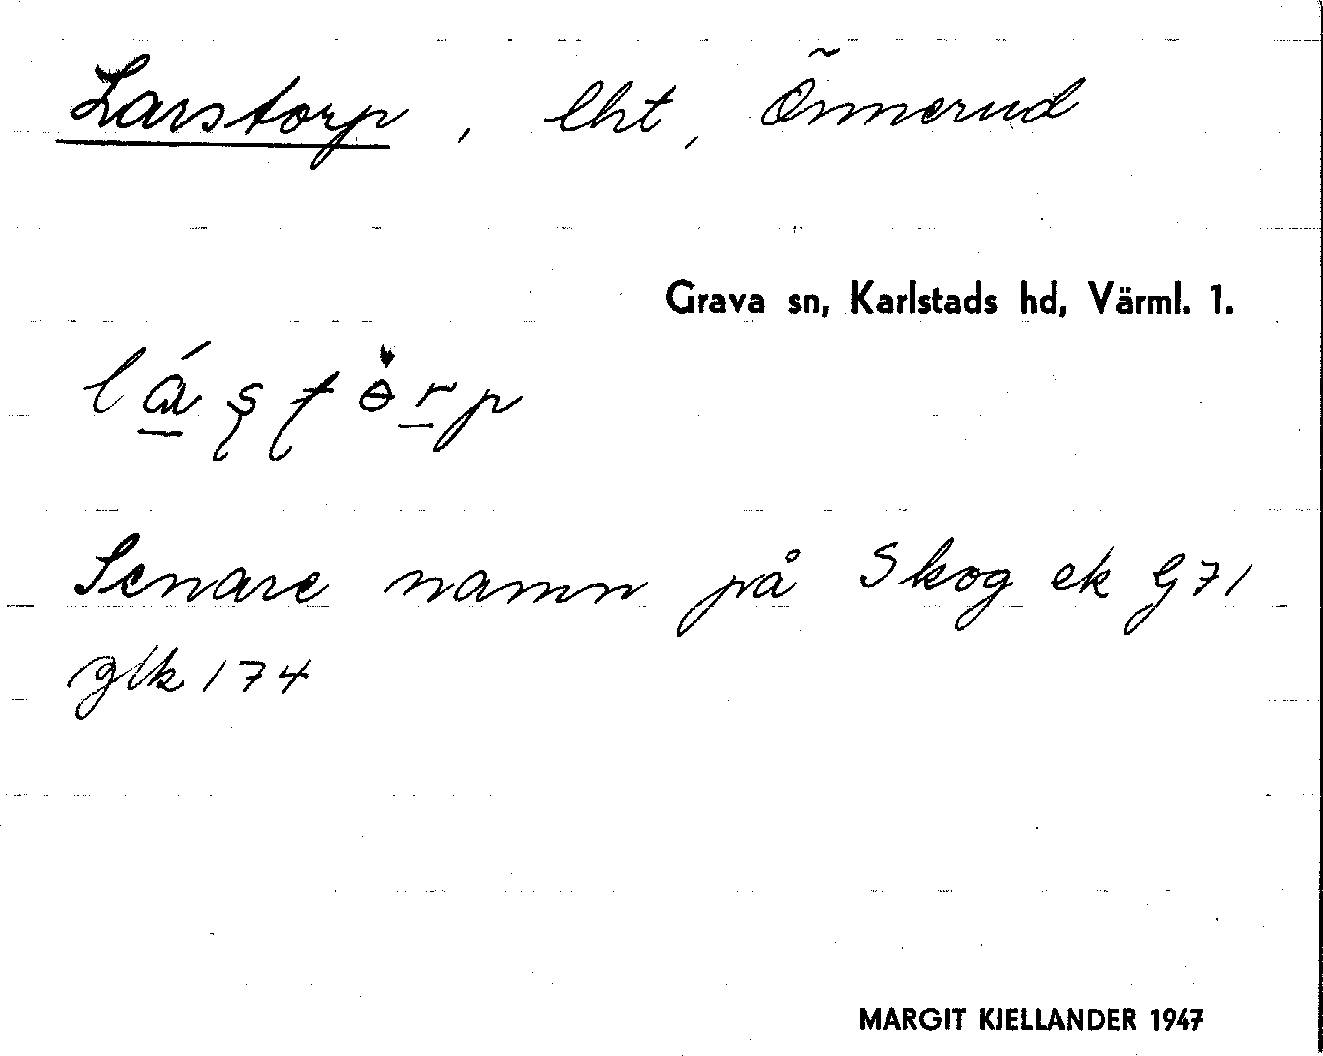 Larstorp, lht, Önnerud
Grava sn, Karlstads hd, Värml. 1.
Senare namn på Skog ek G 71
glk 174
MARGIT KJELLANDER 1947